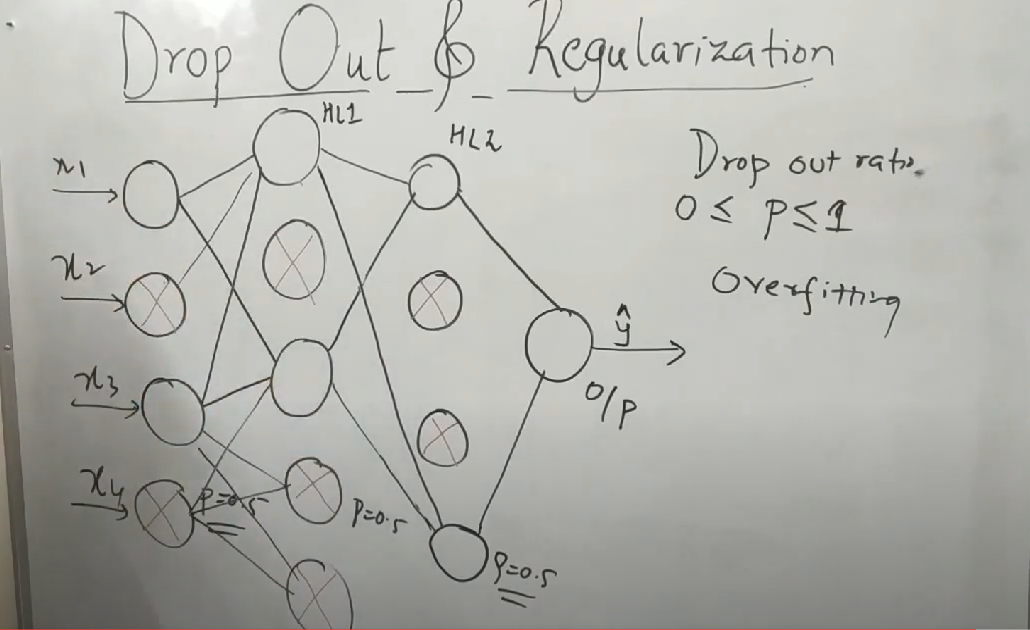 Drop Out & Regularization
HL1
HL2
x1
x2
x3
x4
P=0.5
P=0.5
P=0.5
ŷ
O/P
Drop out ratio
0 ≤ P ≤ 1
Overfitting